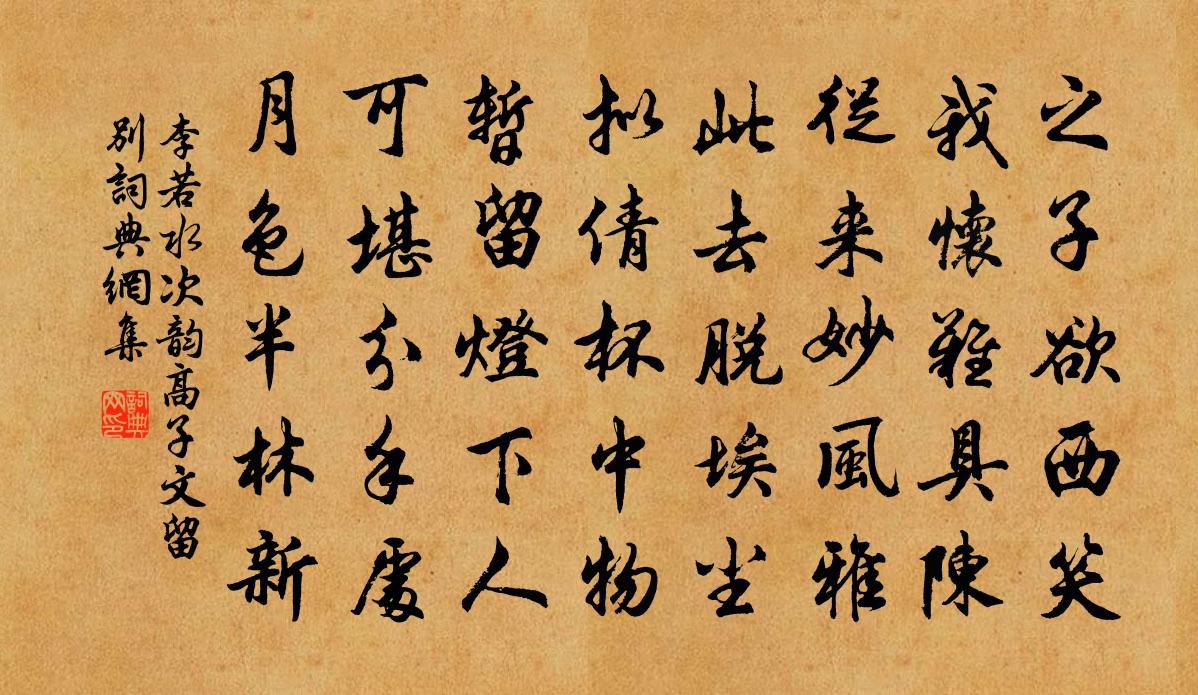 之子欲西笑
我懷難具陳
從来妙風雅
此去脱埃尘
拟倩杯中物
暫留燈下人
可堪分手處
月色半林新
李若水次韵高子文留
别詞典網集
詞典
网印